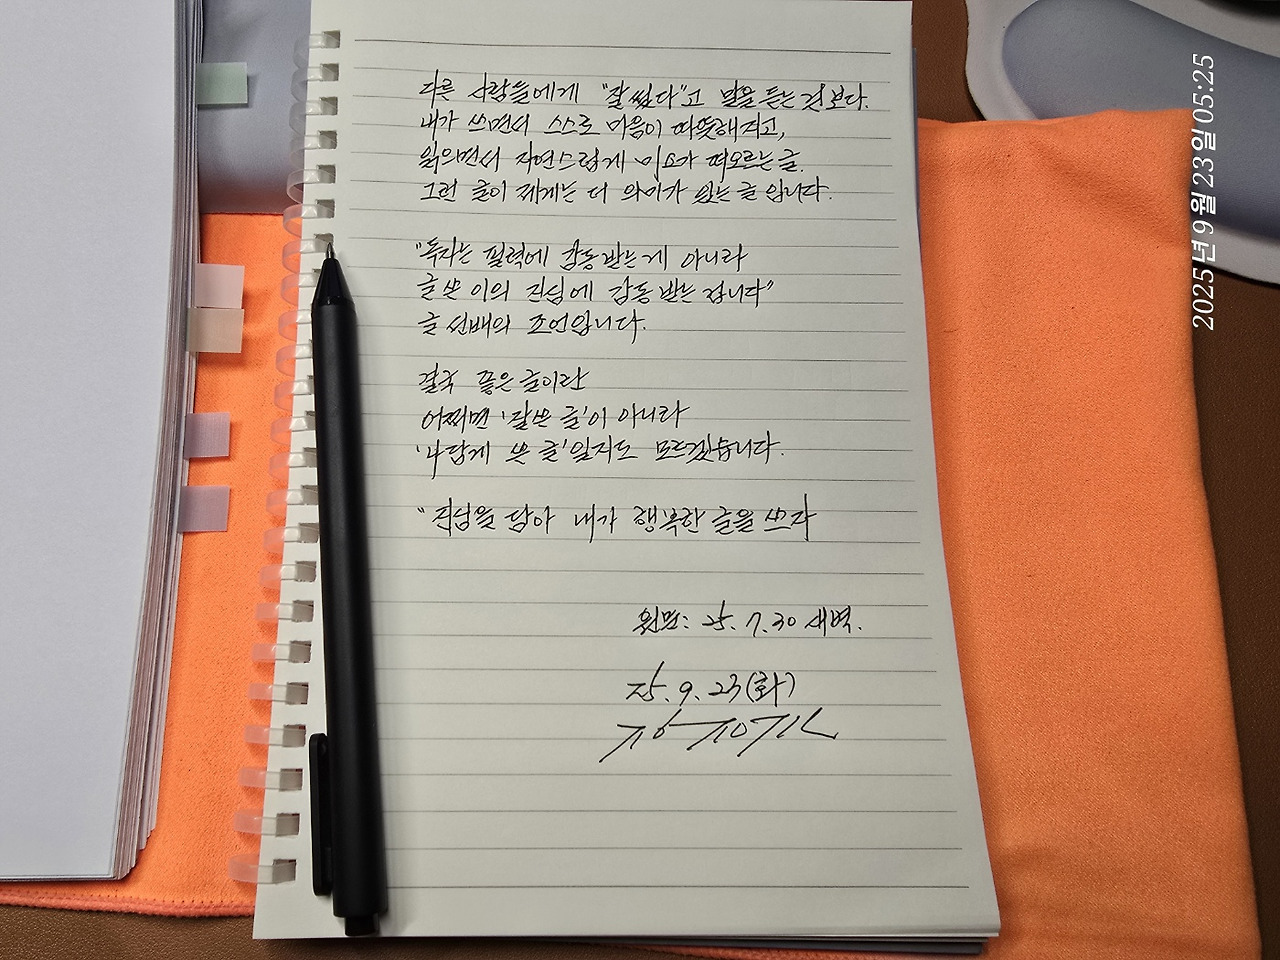 다른 사람들에게 "잘 썼다"고 말을 듣는 것보다.
내가 쓰면서 스스로 마음이 따뜻해지고,
읽으면서 자연스럽게 미소가 떠오르는 글.
그런 글이 제게는 더 의미가 있는 글입니다.
"독자는 필력에 감동 받는 게 아니라
글 쓴 이의 진심에 감동 받는 겁니다"
글 선배의 조언입니다.
결국 좋은 글이란
어쩌면 '잘 쓴 글'이 아니라
'나답게 쓴 글'일지도 모르겠습니다.
"진심을 담아 내가 행복한 글을 쓰자
원문: 25. 7. 30 새벽.
25. 9. 23(화)
2025년 9월 23일 05:25